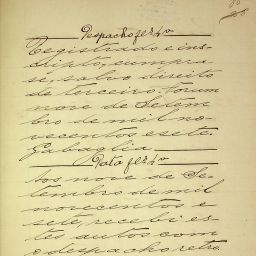 Despacho fez 4v
Registrado e ins-
cripto, cumpra-
se, salvo direito
de terceiro. Forum
nove de Setem
bro de mil no-
vecentos e sete.
Gabaglia
Data fez 4v
Aos nove de Se-
tembro de mil
novecentos e
sete, recebi es-
tes autos com
o despacho retro.